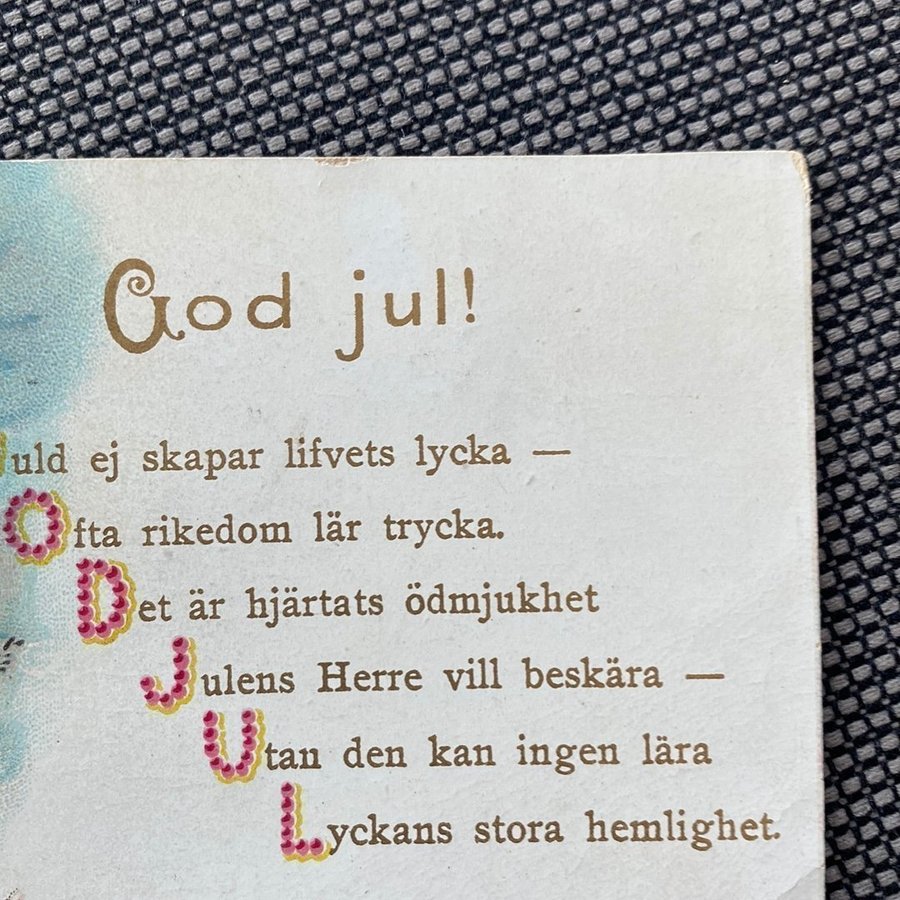 God jul!
uld ej skapar lifvets lycka —
Ofta rikedom lär trycka.
Det är hjärtats ödmjukhet
Julens Herre vill beskära —
Utan den kan ingen lära
Lyckans stora hemlighet.